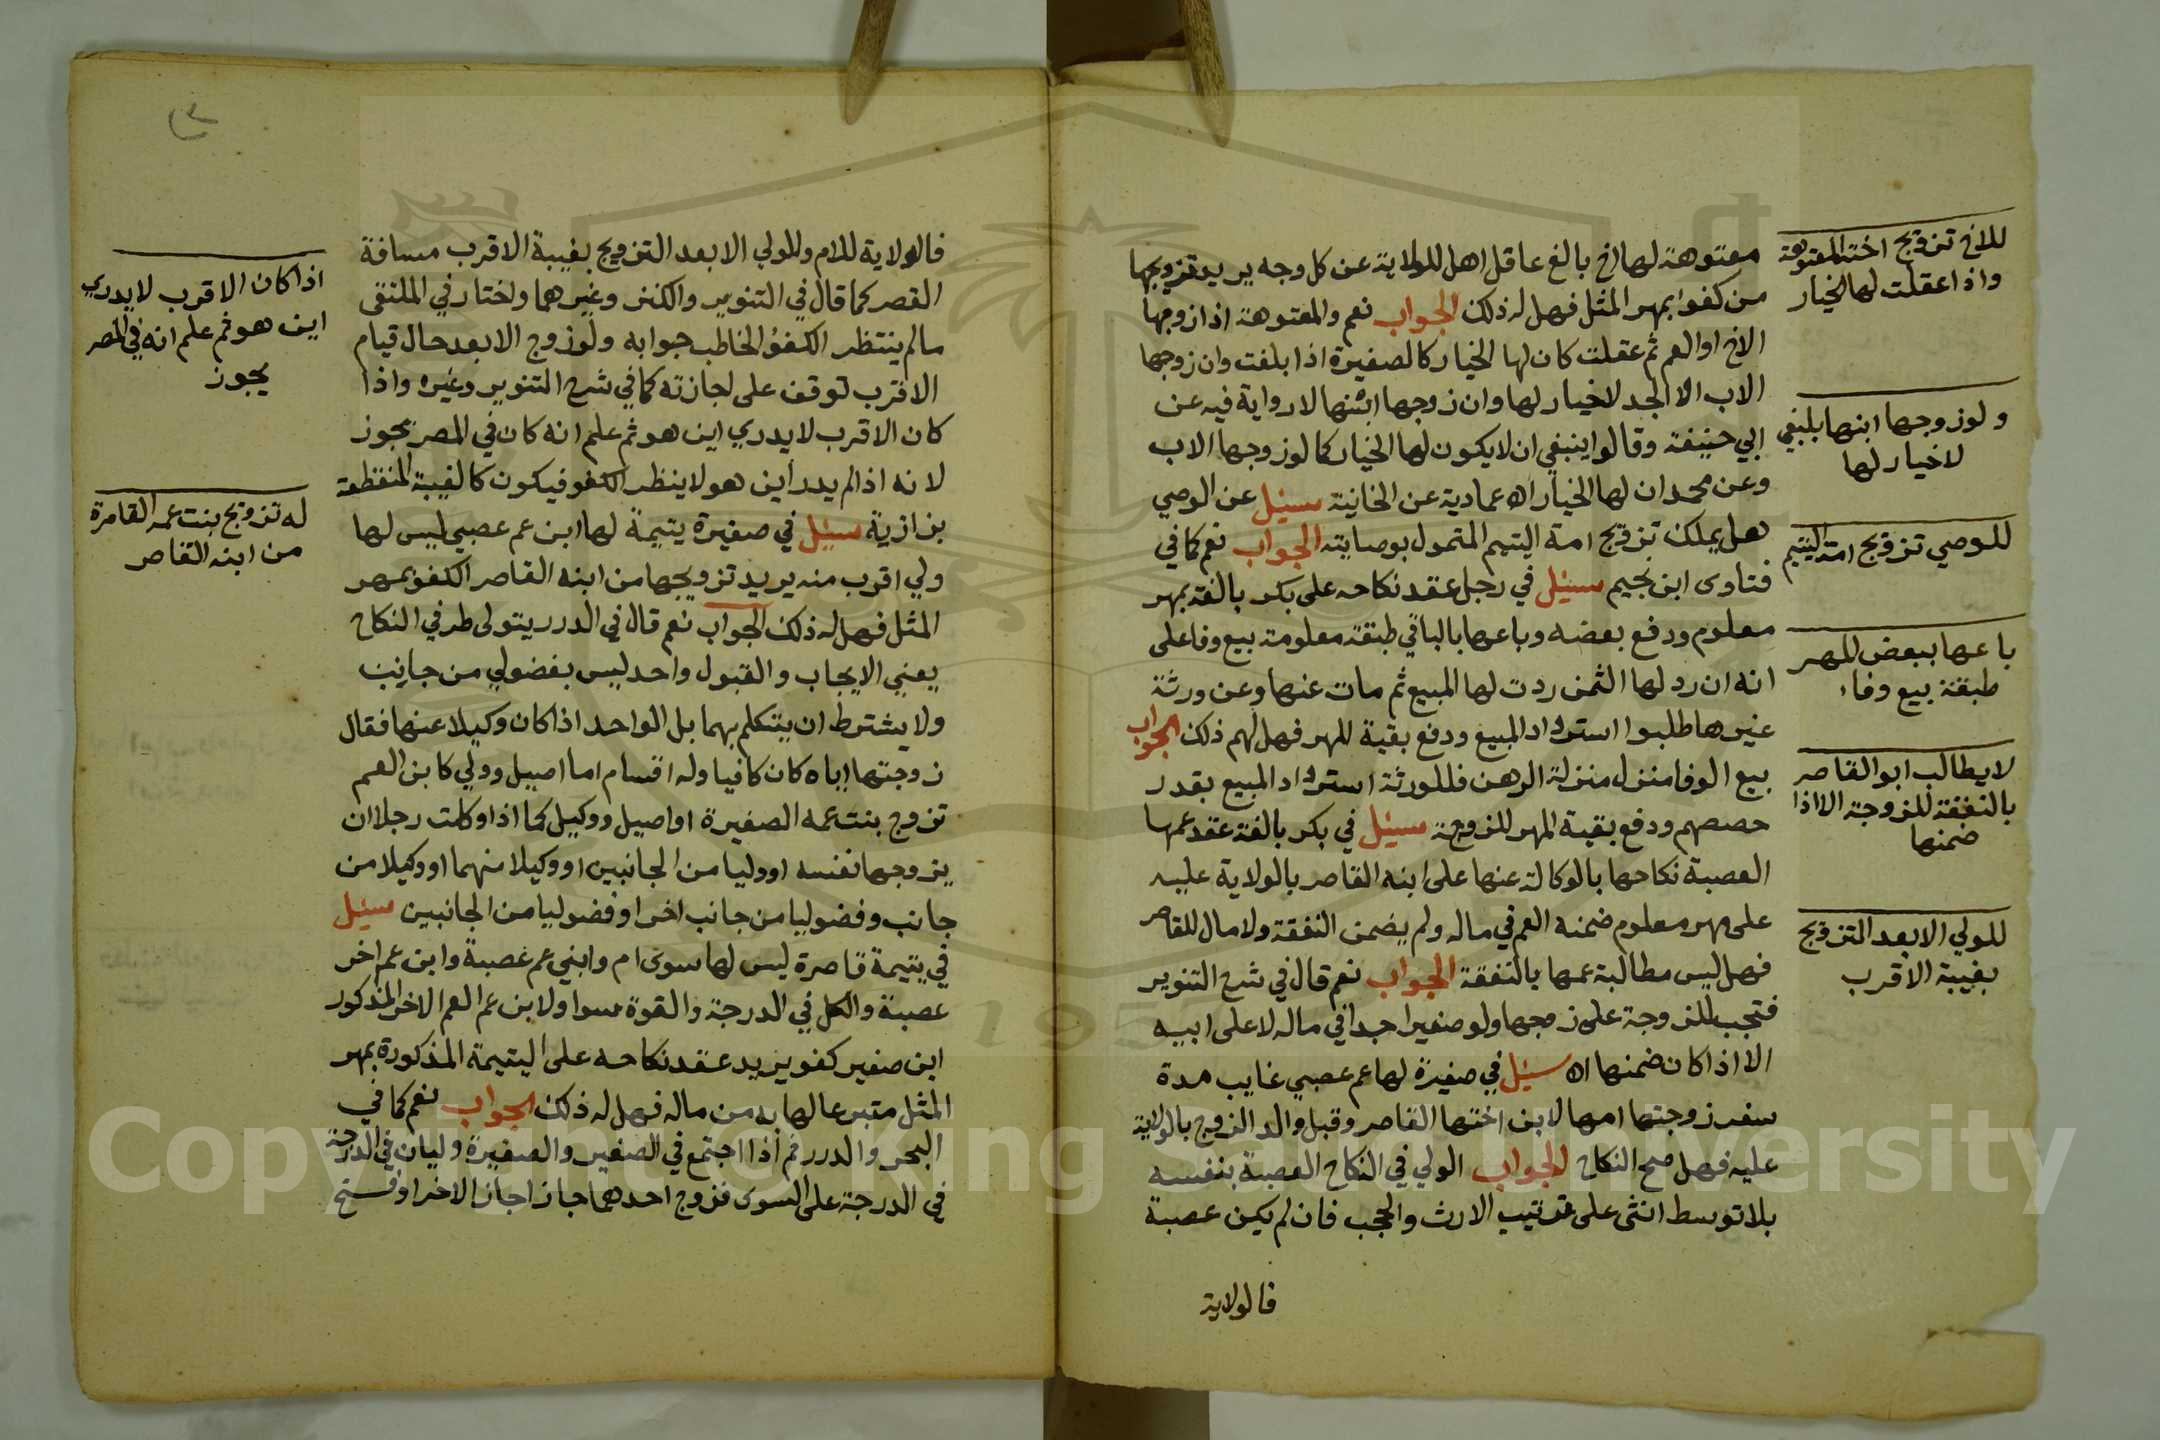 معتوهة لها اخ بالغ عاقل اهل للولاية عن كل وجه يريد تزويجها
من كفوا بمهر المثل فهل له ذلك الجواب نعم والمعتوهة اذا زوجها
الاخ او العم ثم عقلت كان لها الخيار كالصغيرة اذا بلغت وان زوجها
الاب الا الجد لا خيار لها وان زوجها ابنها لا رواية فيه عن
ابي حنيفة وقالوا ينبغي ان لا يكون لها الخيار كما لو زوجها الاب
وعن محمد ان لها الخيار اه عمادية عن الخانية سئل عن الوصي
هل يملك تزويج امة اليتيم المتمول بوصايته الجواب نعم كما في
فتاوى ابن نجيم سئل في رجل عقد نكاحه على بكر بالغة بمهر
معلوم ودفع بعضه وباعها بالباقي طبقة معلومة بيع وفا على
انه ان رد لها الثمن ردت لها المبيع ثم مات عنها وعن ورثة
غيرها طلبوا استرداد المبيع ودفع بقية المهر فهل لهم ذلك الجواب
بيع الوفا منزل منزلة الرهن فللورثة استرداد المبيع بقدر
حصصهم ودفع بقية المهر للزوجة سئل في بكر بالغة عقد عمها
العصبة نكاحها بالوكالة عنها على ابنه القاصر بالولاية عليه
على مهر معلوم ضمنه العم في ماله ولم يضمن النفقة ولا مال للقاصر
فهل ليس مطالبة عمها بالنفقة الجواب نعم قال في شرح التنوير
فتجب للزوجة على زوجها ولو صغيرا جدا في ماله لا على ابيه
الا اذا كان ضمنها اه سئل في صغيرة لها عم عصبي غايب مدة
سفر زوجتها امها لابن اختها القاصر وقبل والد الزوج بالولاية
عليه فهل صح النكاح الجواب الولي في النكاح العصبة بنفسه
بلا توسط انثى على ترتيب الارث والحجب فان لم يكن عصبة
فالولاية
للاخ تزويج اخته المعتوهة
واذا عقلت لها الخيار
ولو زوجها ابنها ينبغي
لا خيار لها
للوصي تزويج امة اليتيم
باعها ببعض المهر
طبقة بيع وفاء
لا يطالب ابو القاصر
بالنفقة للزوجة الا اذا
ضمنها
للولي الابعد التزويج
بغيبة الاقرب
فالولاية للام وللولي الابعد التزويج بغيبة الاقرب مسافة
القصر كما قال في التنوير والكنز وغيرهما واختار في الملتقى
مالم ينتظر الكفؤ الخاطب جوابه ولو زوج الابعد حال قيام
الاقرب توقف على اجازته كما في شرح التنوير وغيره واذا
كان الاقرب لا يدري اين هو ثم علم انه كان في المصر يجوز
لانه اذا لم يدر أين هو لا ينظر الكفو فيكون كالغيبة المنقطعة
بزازية سئل في صغيرة يتيمة لها ابن عم عصبي ليس لها
ولي اقرب منه يريد تزويجها من ابنه القاصر الكفو بمهر
المثل فهل له ذلك الجواب نعم قال في الدرر يتولى طرفي النكاح
يعني الايجاب والقبول واحد ليس بفضولي من جانب
ولا يشترط ان يتكلم بهما بل الواحد اذا كان وكيلا عنها فقال
زوجتها اياه كان كافيا وله اقسام اما اصيل وولي كابن العم
تزوج بنت عمه الصغيرة او اصيل ووكيل كما اذا وكلت رجلا ان
يزوجها نفسه او وليا من الجانبين او وكيلا منهما او وكيلا من
جانب وفضوليا من جانب اخر او فضوليا من الجانبين سئل
في يتيمة قاصرة ليس لها سوى ام وابني عم عصبة وابن عم اخر
عصبة والكل في الدرجة والقوة سوا ولابن عم العم الاخر المذكور
ابن صغير كفو يريد عقد نكاحه على اليتيمة المذكورة بمهر
المثل متبرعا لها به من ماله فهل له ذلك الجواب نعم كما في
البحر والدرر ثم اذا اجتمع في الصغير والصغيرة وليان في الدرجة
في الدرجة على السوى فزوج احدهما جاز اجاز الاخر او فسخ
اذا كان الاقرب لا يدري
اين هو ثم علم انه في المصر
يجوز
له تزويج بنت عمه القاصرة
من ابنه القاصر
Copyright © King Saud University
195